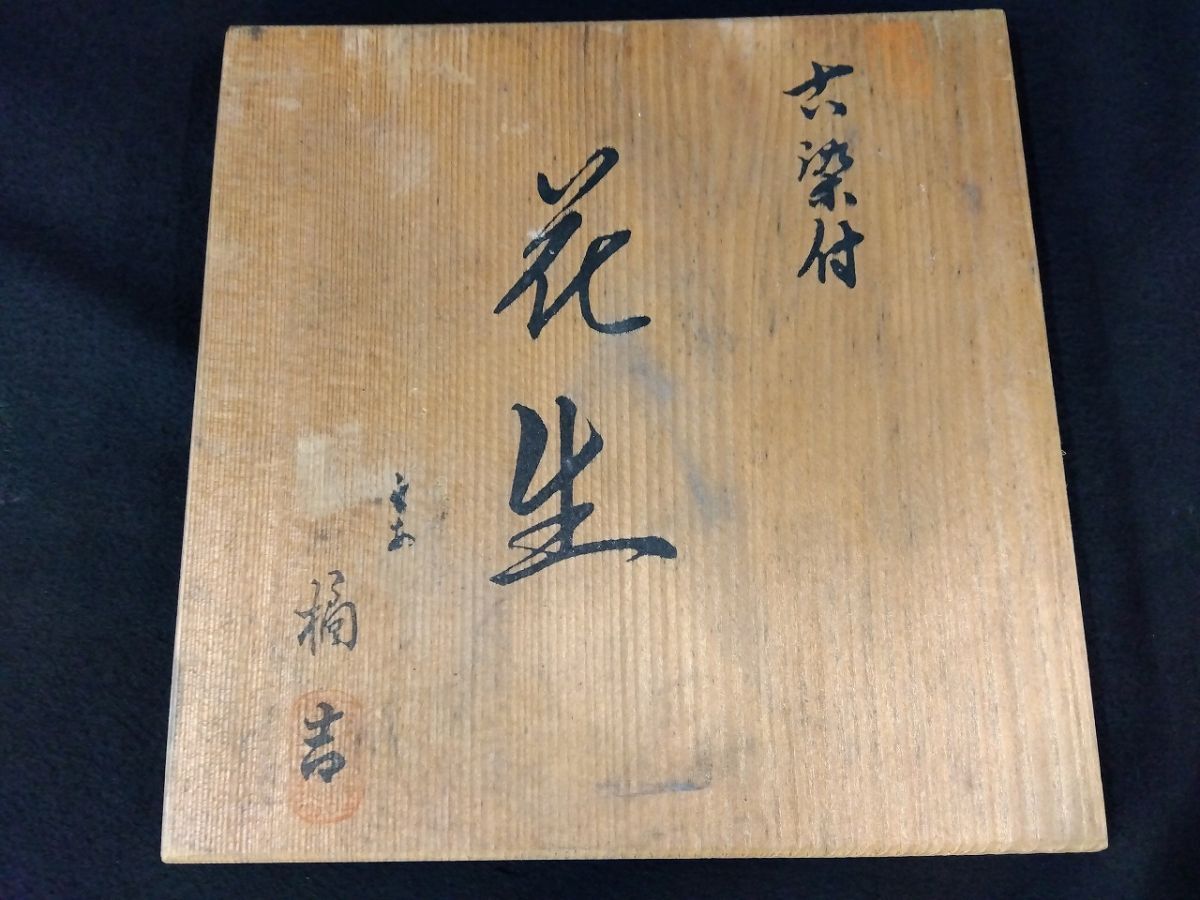 古染付
花生
橘吉